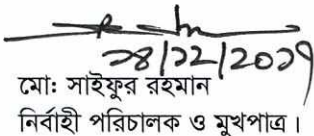 ২৪/১২/২০১৭
মোঃ সাইফুর রহমান
নির্বাহী পরিচালক ও মুখপাত্র।